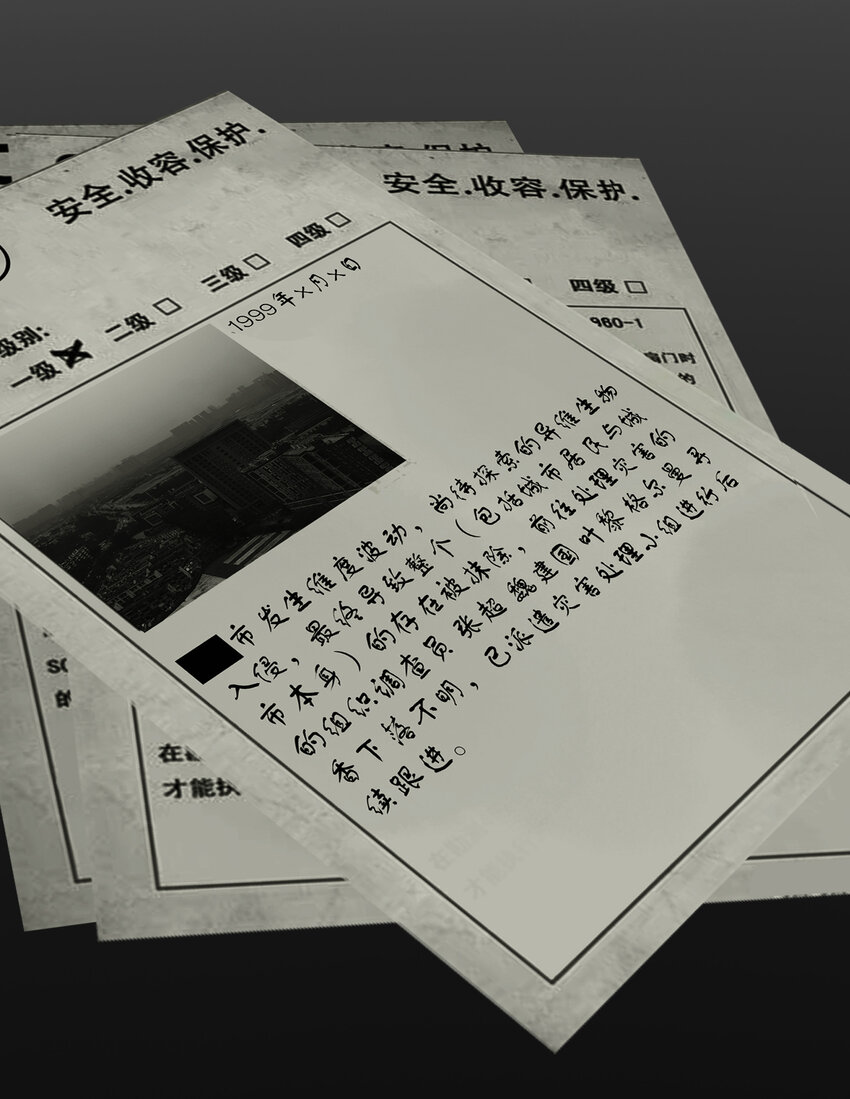 安全.收容.保护.
级别:
一级 二级 三级 四级
1999年×月×日
市发生维度波动，尚待探索的异维生物
入侵，最终导致整个（包括城市居民与城
市本身）的存在被抹除，前往处理灾害的
的组织调查员张超魏建国叶黎格尔曼寻
香下落不明，已派遣灾害处理小组进行后
续跟进。
安全.收容.保护.
四级
960-1
门时
的
的
在
才能执